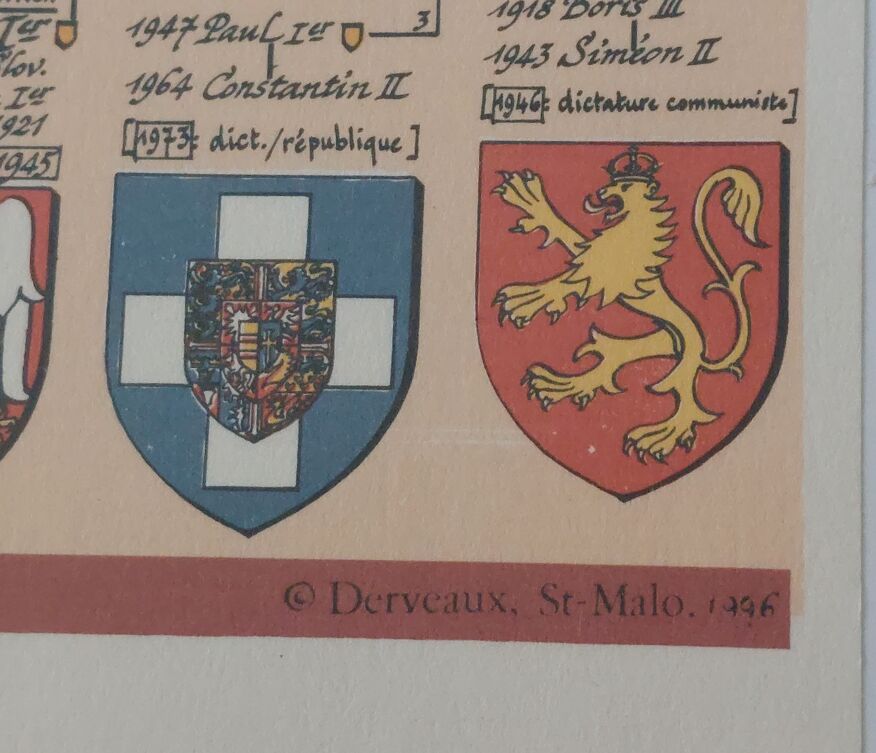 Ier
lov.
Ier
1921
1945
1947 Paul Ier 3
1964 Constantin II
[1973: dict./république]
1918 Boris III
1943 Siméon II
[1946: dictature communiste]
© Derveaux, St-Malo. 1996